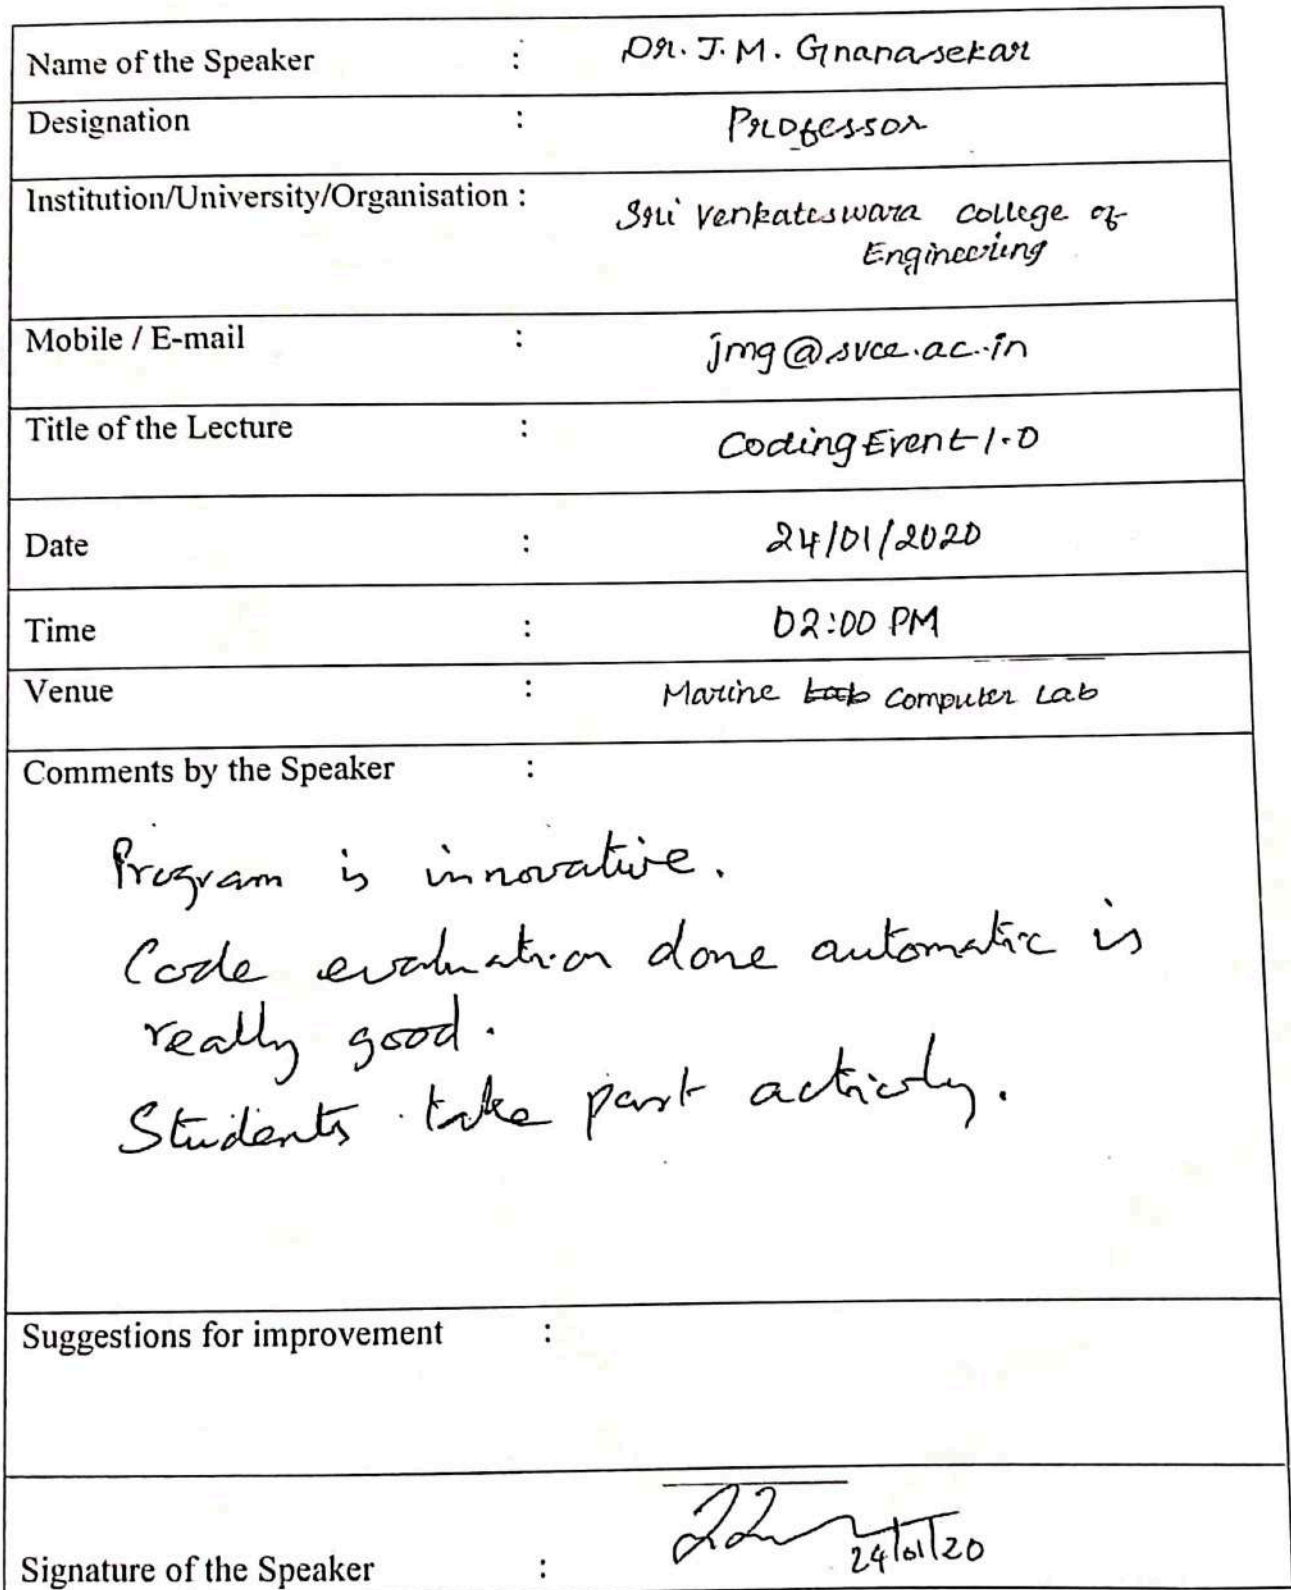 Name of the Speaker : Dr. J. M. Gnanasekar
Designation : Professor
Institution/University/Organisation : Sri Venkateswara College of
Engineering
Mobile / E-mail : jmg@svce.ac.in
Title of the Lecture : Coding Event 1.0
Date : 24/01/2020
Time : 02:00 PM
Venue : Marine Lab Computer Lab
Comments by the Speaker :
Program is innovative.
Code evaluation done automatic is
really good.
Students take part actively.
Suggestions for improvement :
Signature of the Speaker : 24/01/20